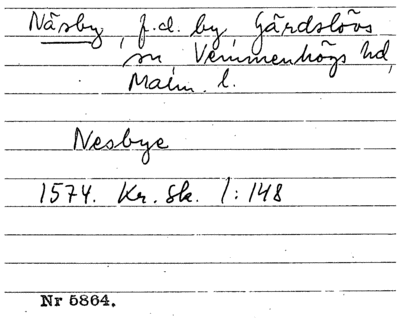 Näsby, f.d. by, Gärdslövs
sn, Vemmenhögs hd,
Malm. l.
Nesbye
1574. Kr. Sk. 1:148
Nr 5864.